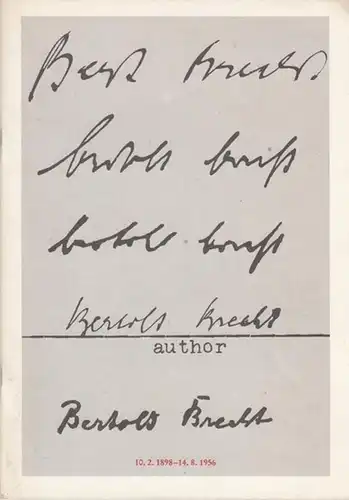 Bert Brecht
bertolt brecht
bertolt brecht
Bertolt Brecht
author
Bertolt Brecht
10. 2. 1898–14. 8. 1956